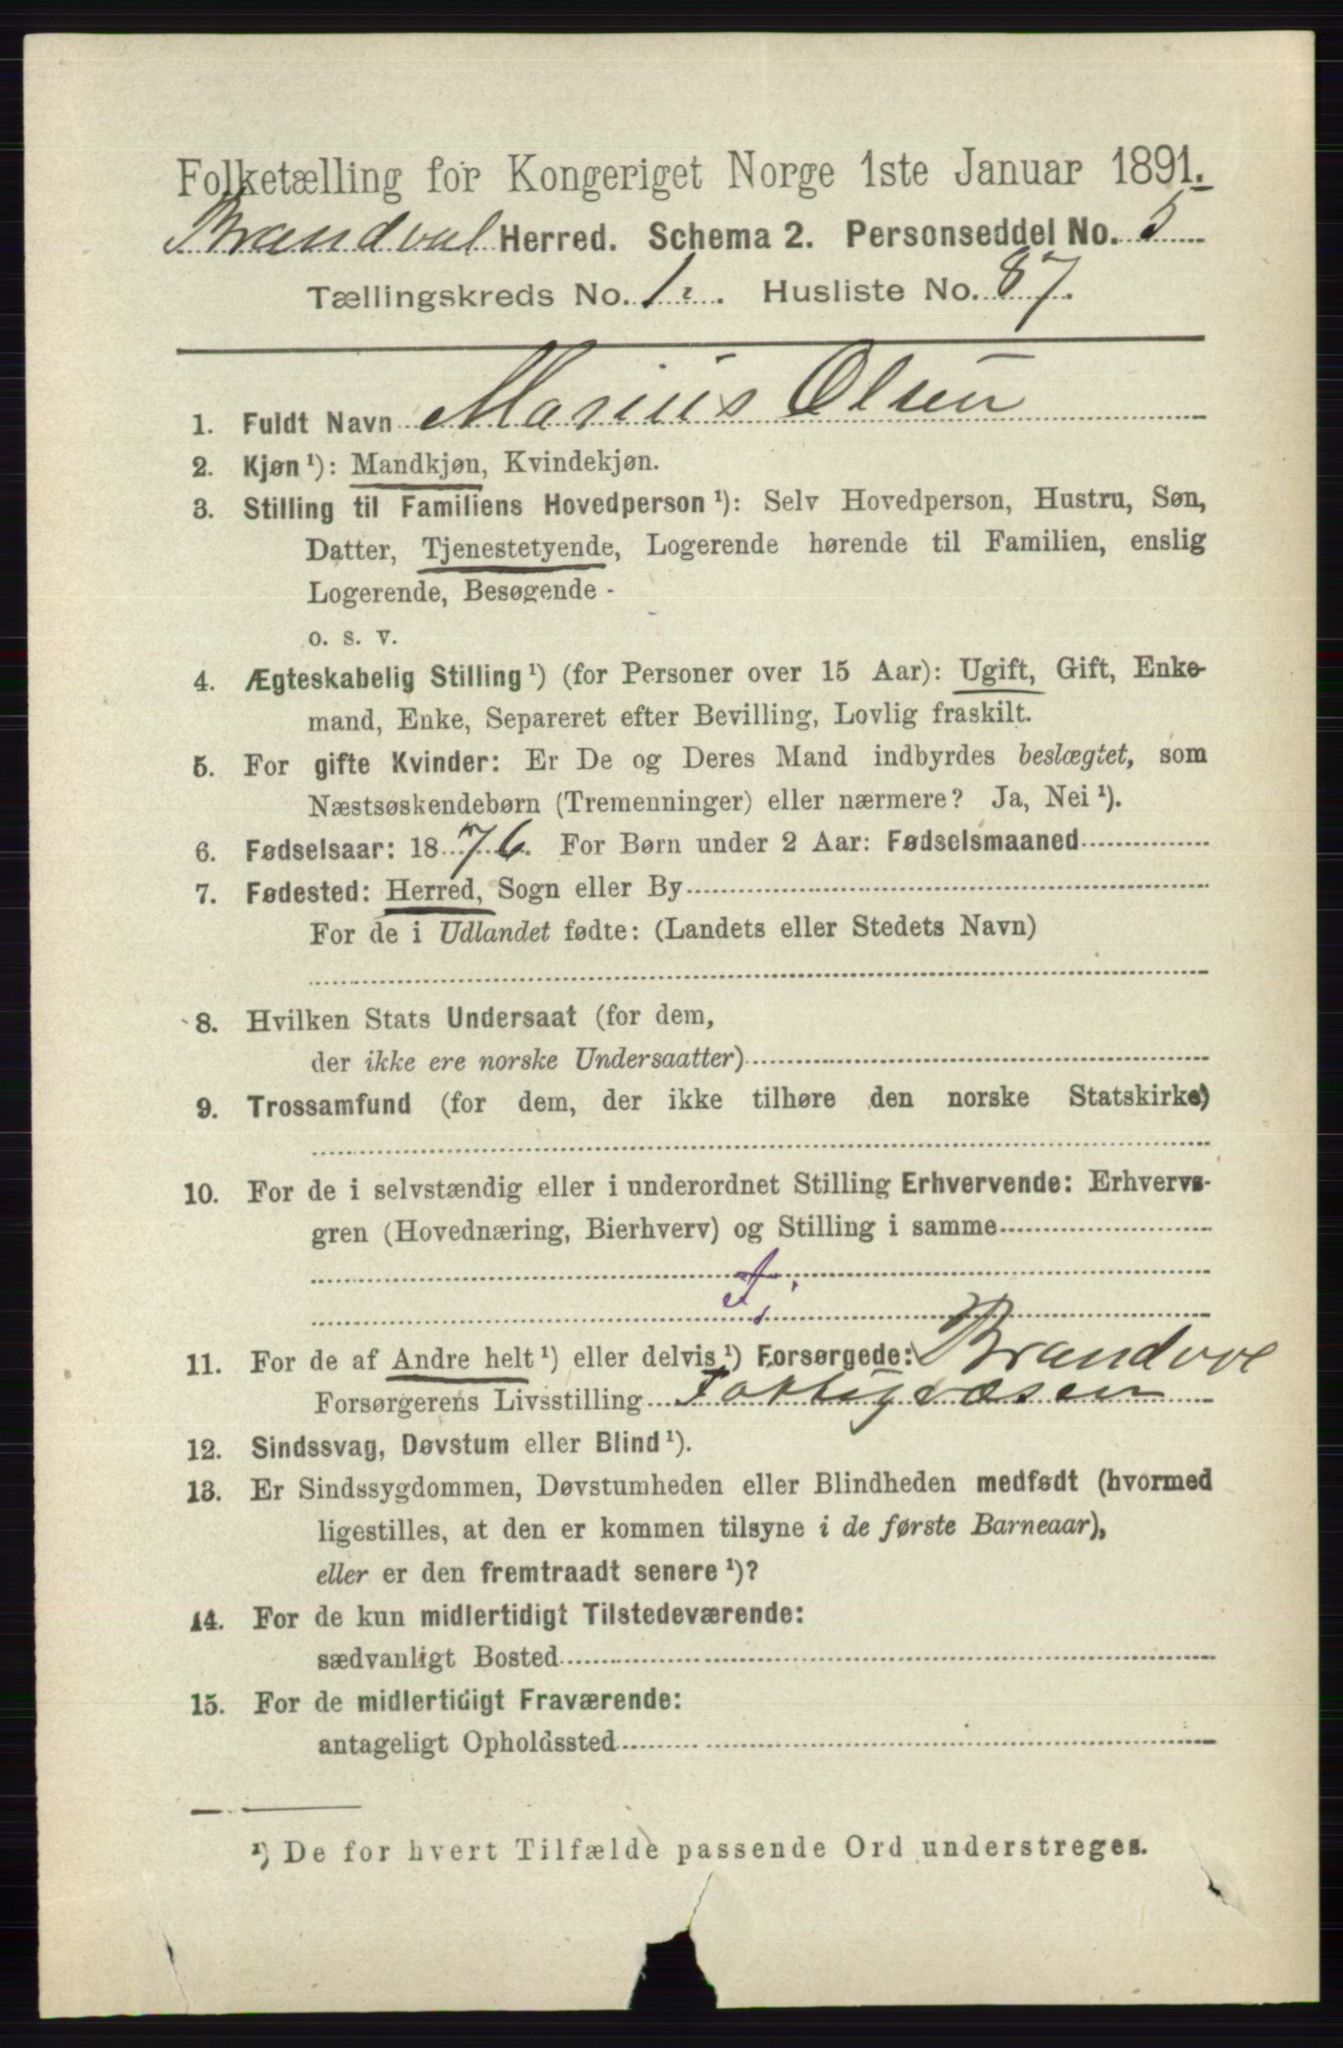 Folketælling for Kongeriget Norge 1ste Januar 1891.
Brandval Herred. Schema 2. Personseddel No. 5
Tællingskreds No. 1. Husliste No. 87.
1. Fuldt Navn Marius Olsen
2. Kjøn ¹): Mandkjøn, Kvindekjøn.
3. Stilling til Familiens Hovedperson ¹): Selv Hovedperson, Hustru, Søn,
Datter, Tjenestetyende, Logerende hørende til Familien, enslig
Logerende, Besøgende -
o. s. v.
4. Ægteskabelig Stilling ¹) (for Personer over 15 Aar): Ugift, Gift, Enke-
mand, Enke, Separeret efter Bevilling, Lovlig fraskilt.
5. For gifte Kvinder: Er De og Deres Mand indbyrdes beslægtet, som
Næstsøskendebørn (Tremenninger) eller nærmere? Ja, Nei ¹).
6. Fødselsaar: 1876. For Børn under 2 Aar: Fødselsmaaned
7. Fødested: Herred, Sogn eller By
For de i Udlandet fødte: (Landets eller Stedets Navn)
8. Hvilken Stats Undersaat (for dem,
der ikke ere norske Undersaatter)
9. Trossamfund (for dem, der ikke tilhøre den norske Statskirke)
10. For de i selvstændig eller i underordnet Stilling Erhvervende: Erhvervs-
gren (Hovednæring, Bierhverv) og Stilling i samme
F.
11. For de af Andre helt ¹) eller delvis ¹) Forsørgede: Brandvol
Forsørgerens Livsstilling Fattigvæsen
12. Sindssvag, Døvstum eller Blind ¹).
13. Er Sindssygdommen, Døvstumheden eller Blindheden medfødt (hvormed
ligestilles, at den er kommen tilsyne i de første Barneaar),
eller er den fremtraadt senere ¹)?
14. For de kun midlertidigt Tilstedeværende:
sædvanligt Bosted
15. For de midlertidigt Fraværende:
antageligt Opholdssted
¹) De for hvert Tilfælde passende Ord understreges.